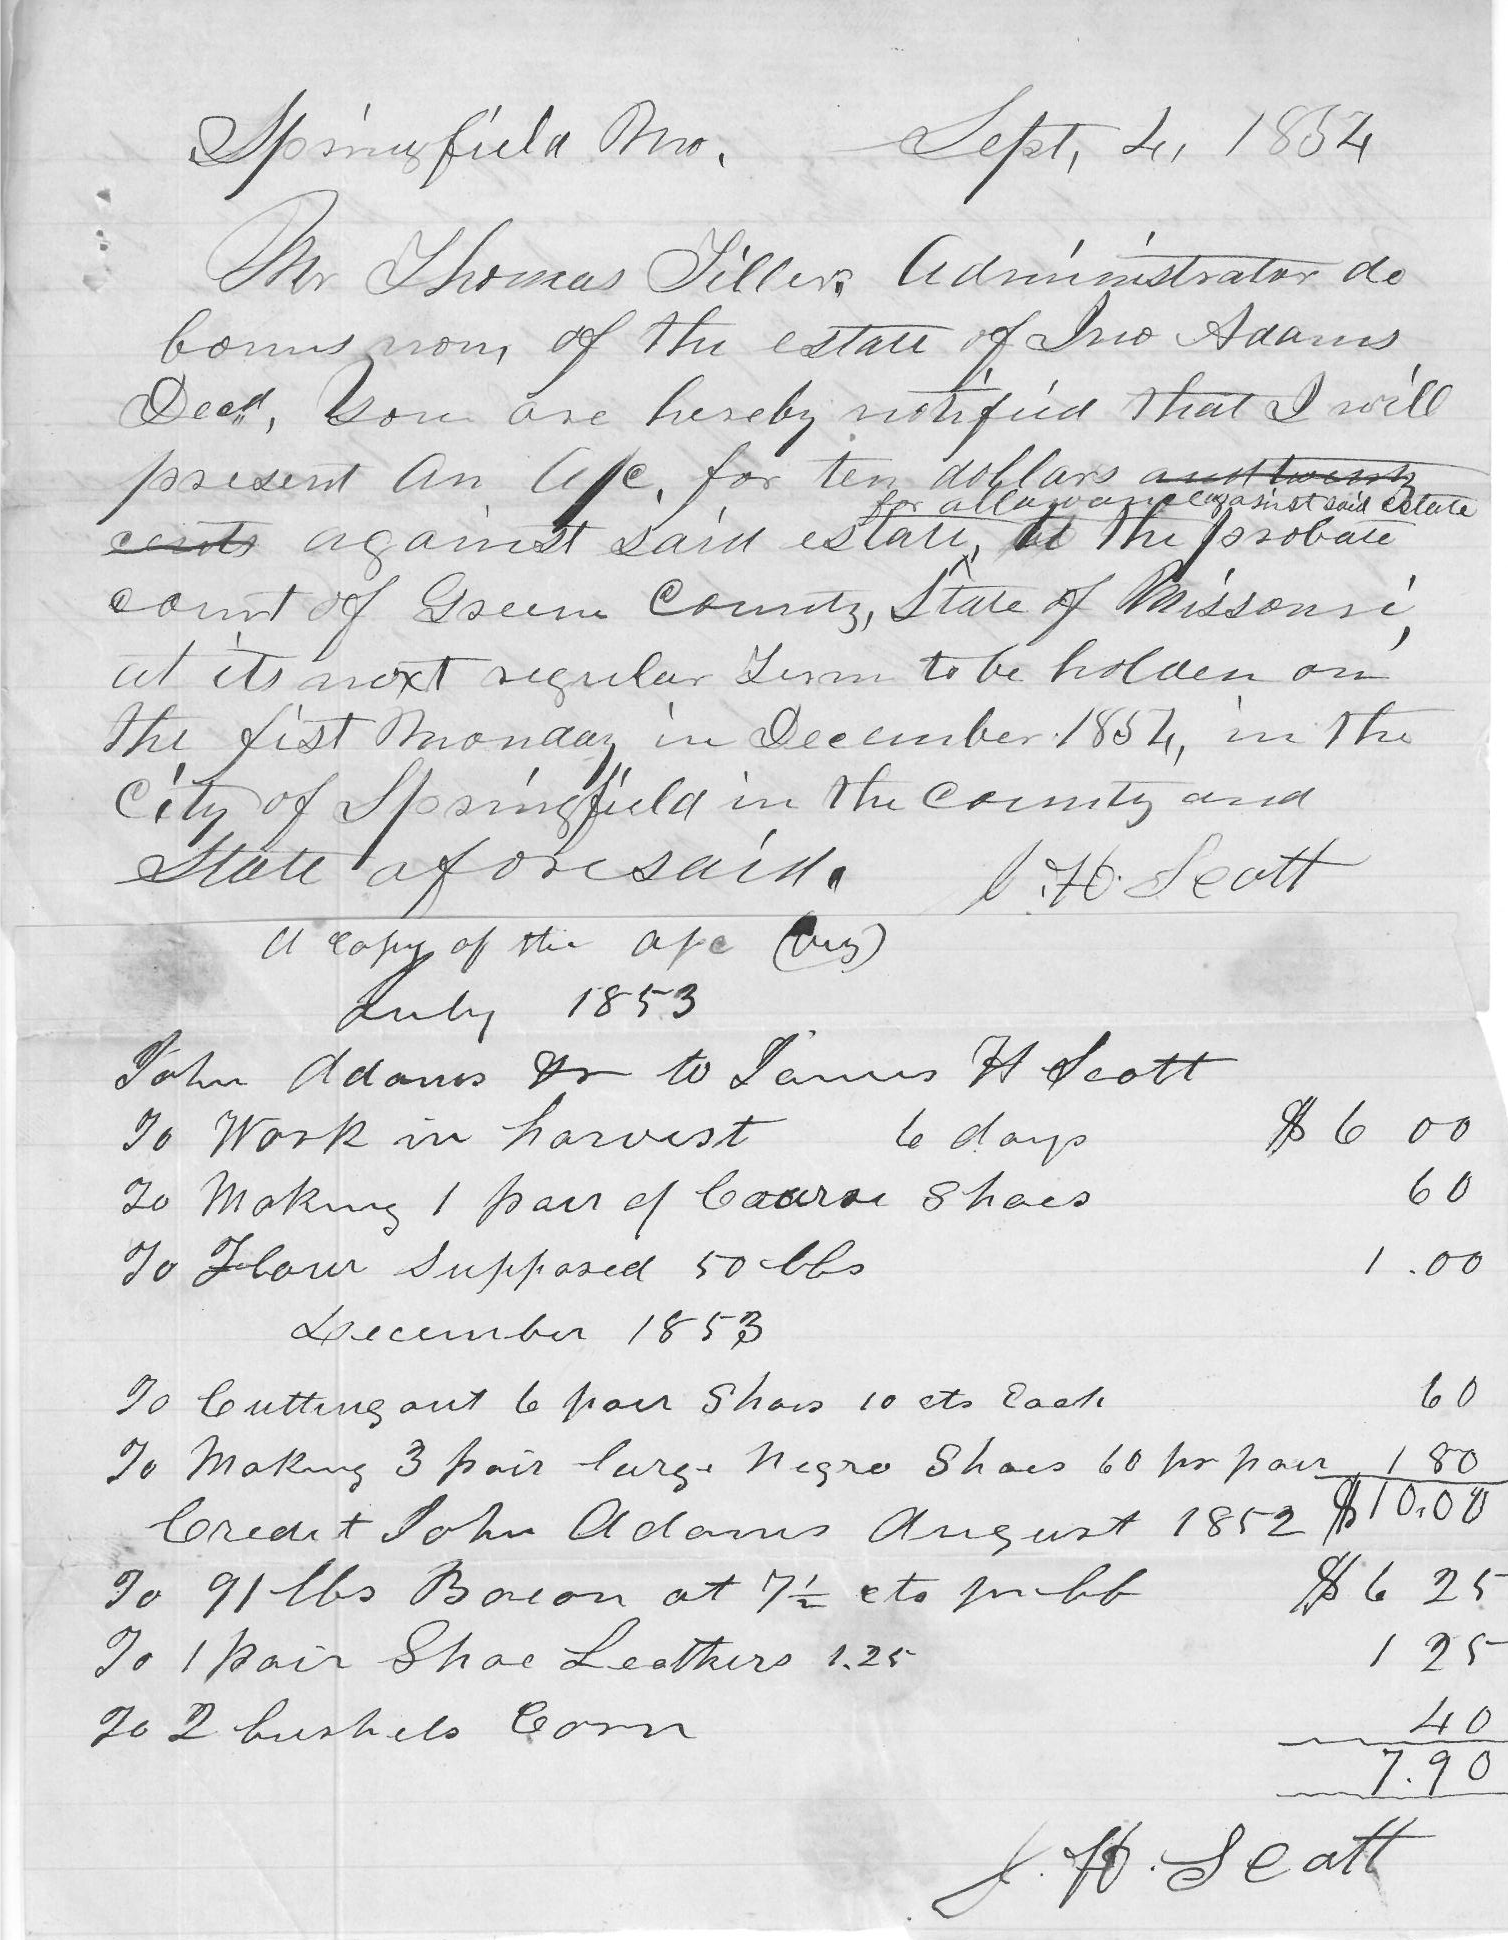 Springfield Mo. Sept, 4, 1854
Mr Thomas Tiller, Administrator de
bonus non, of the estate of Jno Adams
Decd, You are hereby notified that I will
present an A/c, for ten dollars and twenty
for allowance against said estate
cents against said estate, at the probate
court of Greene County, State of Missouri,
at its next regular Term to be holden on
the fist Monday in December 1854, in the
City of Springfield in the County and
State aforesaid. J. H. Scott
A Copy of the a/c (viz)
July 1853
John Adams Dr to James H Scott
To Work in harvest 6 days $6 00
To Making 1 pair of Coarse Shoes 60
To Flour Supposed 50 lbs 1.00
December 1853
To Cutting out 6 pair Shoes 10 cts Each 60
To Making 3 pair large Negro Shoes 60 pr pair 1 80
Credit John Adams August 1852 $10.00
To 91 lbs Bacon at 7½ cts pr lb $6 25
To 1 pair Shoe Leathers 1.25 1 25
To 2 bushels Corn 40
7.90
J. H. Scott